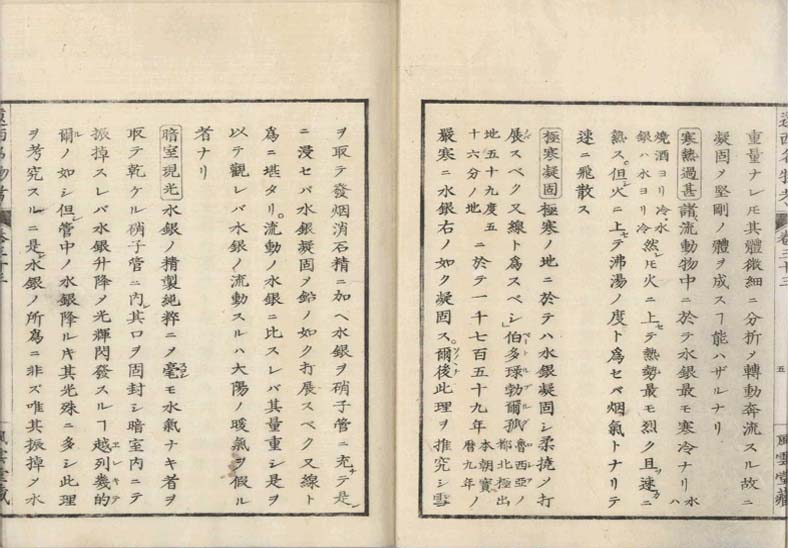 遠西名物考 卷三十三 五 風雲堂藏
重量ナレ𪜈其體微細ニ分析シ轉動奔流スル故ニ
凝固シ堅剛ノ體ヲ成スヿ能ハザルナリ
寒熱過甚 諸流動物中ニ於テ水銀最モ寒冷ナリ 水ハ
燒酒ヨリ冷水
銀ハ水ヨリ冷 然レ𪜈火ニ上セテ熱勢最モ烈ク且速ニ
熱ス。但シ火ニ上セテ沸湯ノ度ト爲セバ烟氣トナリテ
速ニ飛散ス
極寒凝固 極寒ノ地ニ於テハ水銀凝固シ柔撓シ打
展スベク又線ト爲スベシ伯多琭勃爾孤 魯西亞ノ
都北極出
地五十九度五
十六分ノ地 ニ於テ一千七百五十九年 本朝寳
暦九年ノ
嚴寒ニ水銀右ノ如ク凝固ス。爾後此理ヲ推究シ雪
ヲ取テ發烟消石精ニ加ヘ水銀ヲ硝子管ニ充テ是レ
ニ浸セバ水銀凝固シ鉛ノ如ク打展スベク又線ト
爲ニ堪タリ。流動ノ水銀ニ比スレバ其量重シ是ヲ
以テ觀レバ水銀ノ流動スルハ大陽ノ暖氣ヲ假ル
者ナリ
暗室現光 水銀ノ精製純粹ニシテ毫モ水氣ナキ者ヲ
取テ乾ケル硝子管ニ内レ其口ヲ固封シ暗室内ニテ
振掉スレバ水銀升降シテ光輝閃發スルヿ越列幾的
爾ノ如シ但シ管中ノ水銀降ル𪜈其光殊ニ多シ此理
ヲ考究スルニ是レ水銀ノ所爲ニ非ズ唯其振掉シテ水
遠西名物考 卷三十三 風雲堂藏